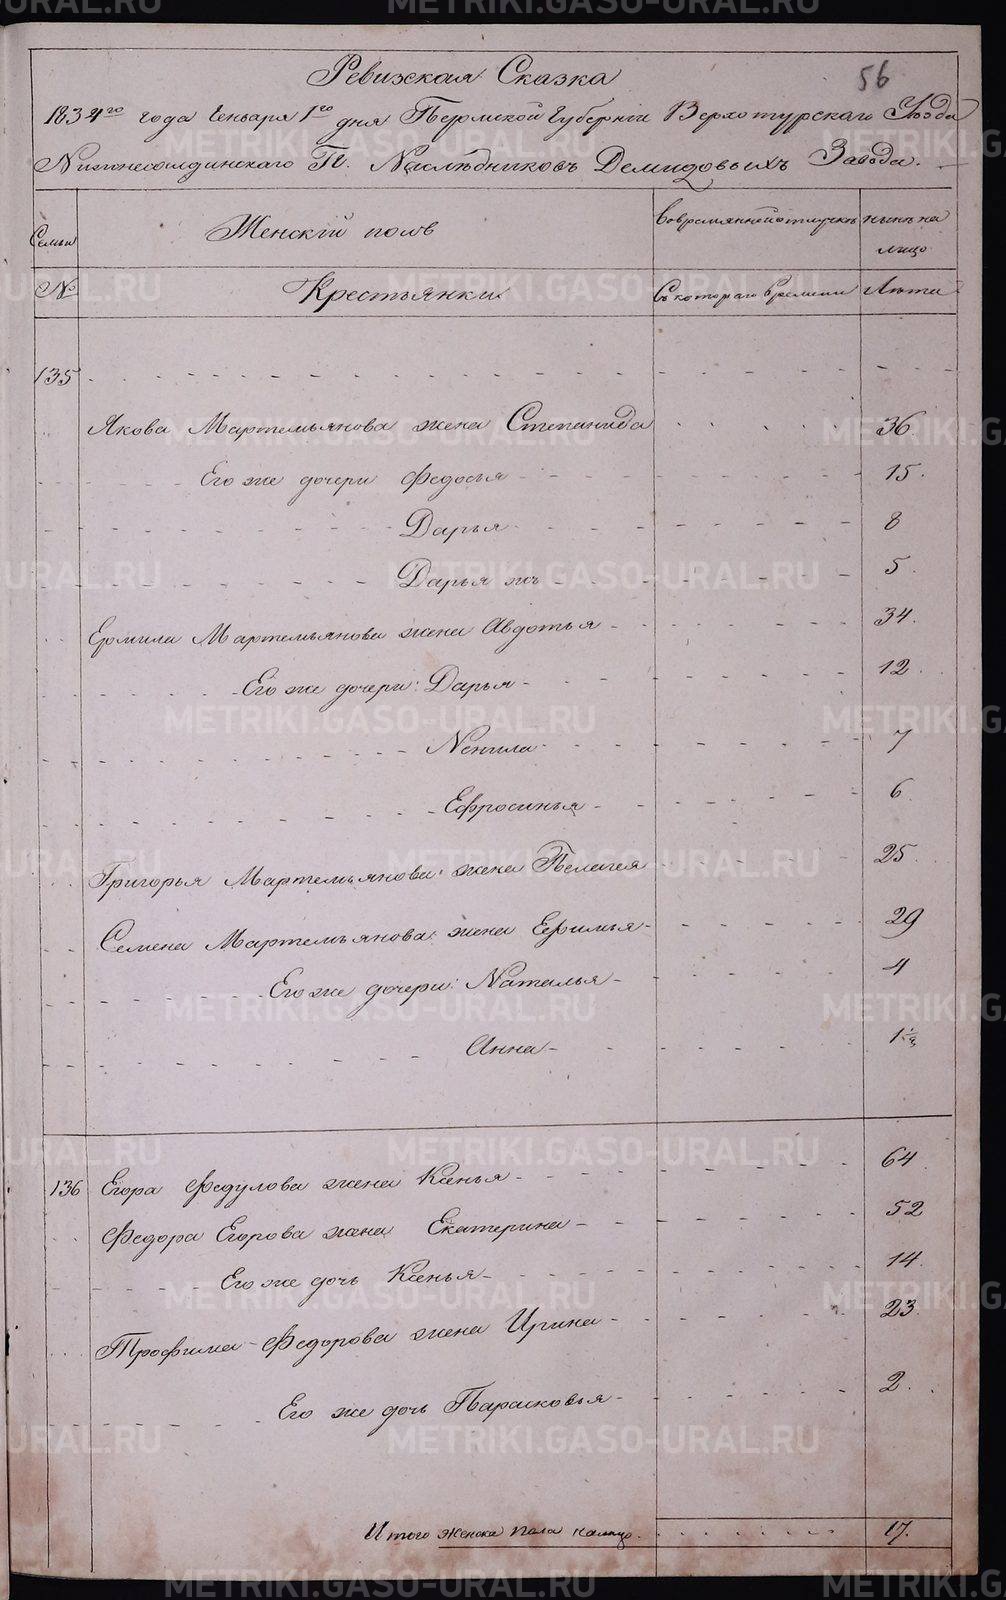 56
Ревизская Сказка
1834го года Генваря 1го дня Пермской Губерніи Верхотурскаго Уѣзда
Нижнесалдинскаго Гг. Наслѣдниковъ Демидовыхъ Завода.
Семьи
Женскій полъ
Во временной отлучкѣ
нынѣ на лицо
№
Крестьянки
Съ котораго времени
Лѣта
135
Якова Мартемьянова жена Степанида 36.
Его же дочери Федосья 15.
Дарья 8
Дарья жъ 5.
Ермила Мартемьянова жена Авдотья 34.
Его же дочери: Дарья 12
Ненила 7
Ефросинья 6
Григорья Мартемьянова жена Пелагея 25.
Семена Мартемьянова жена Ефимья 29
Его же дочери: Наталья 4
Анна 1½
136 Егора Федулова жена Ксенья 64
Федора Егорова жена Екатерина 52
Его же дочь Ксенья 14.
Трофима Федорова жена Ирина 23
Его же дочь Парасковья 2.
Итого женска пола налицо. 17.
METRIKI.GASO-URAL.RU